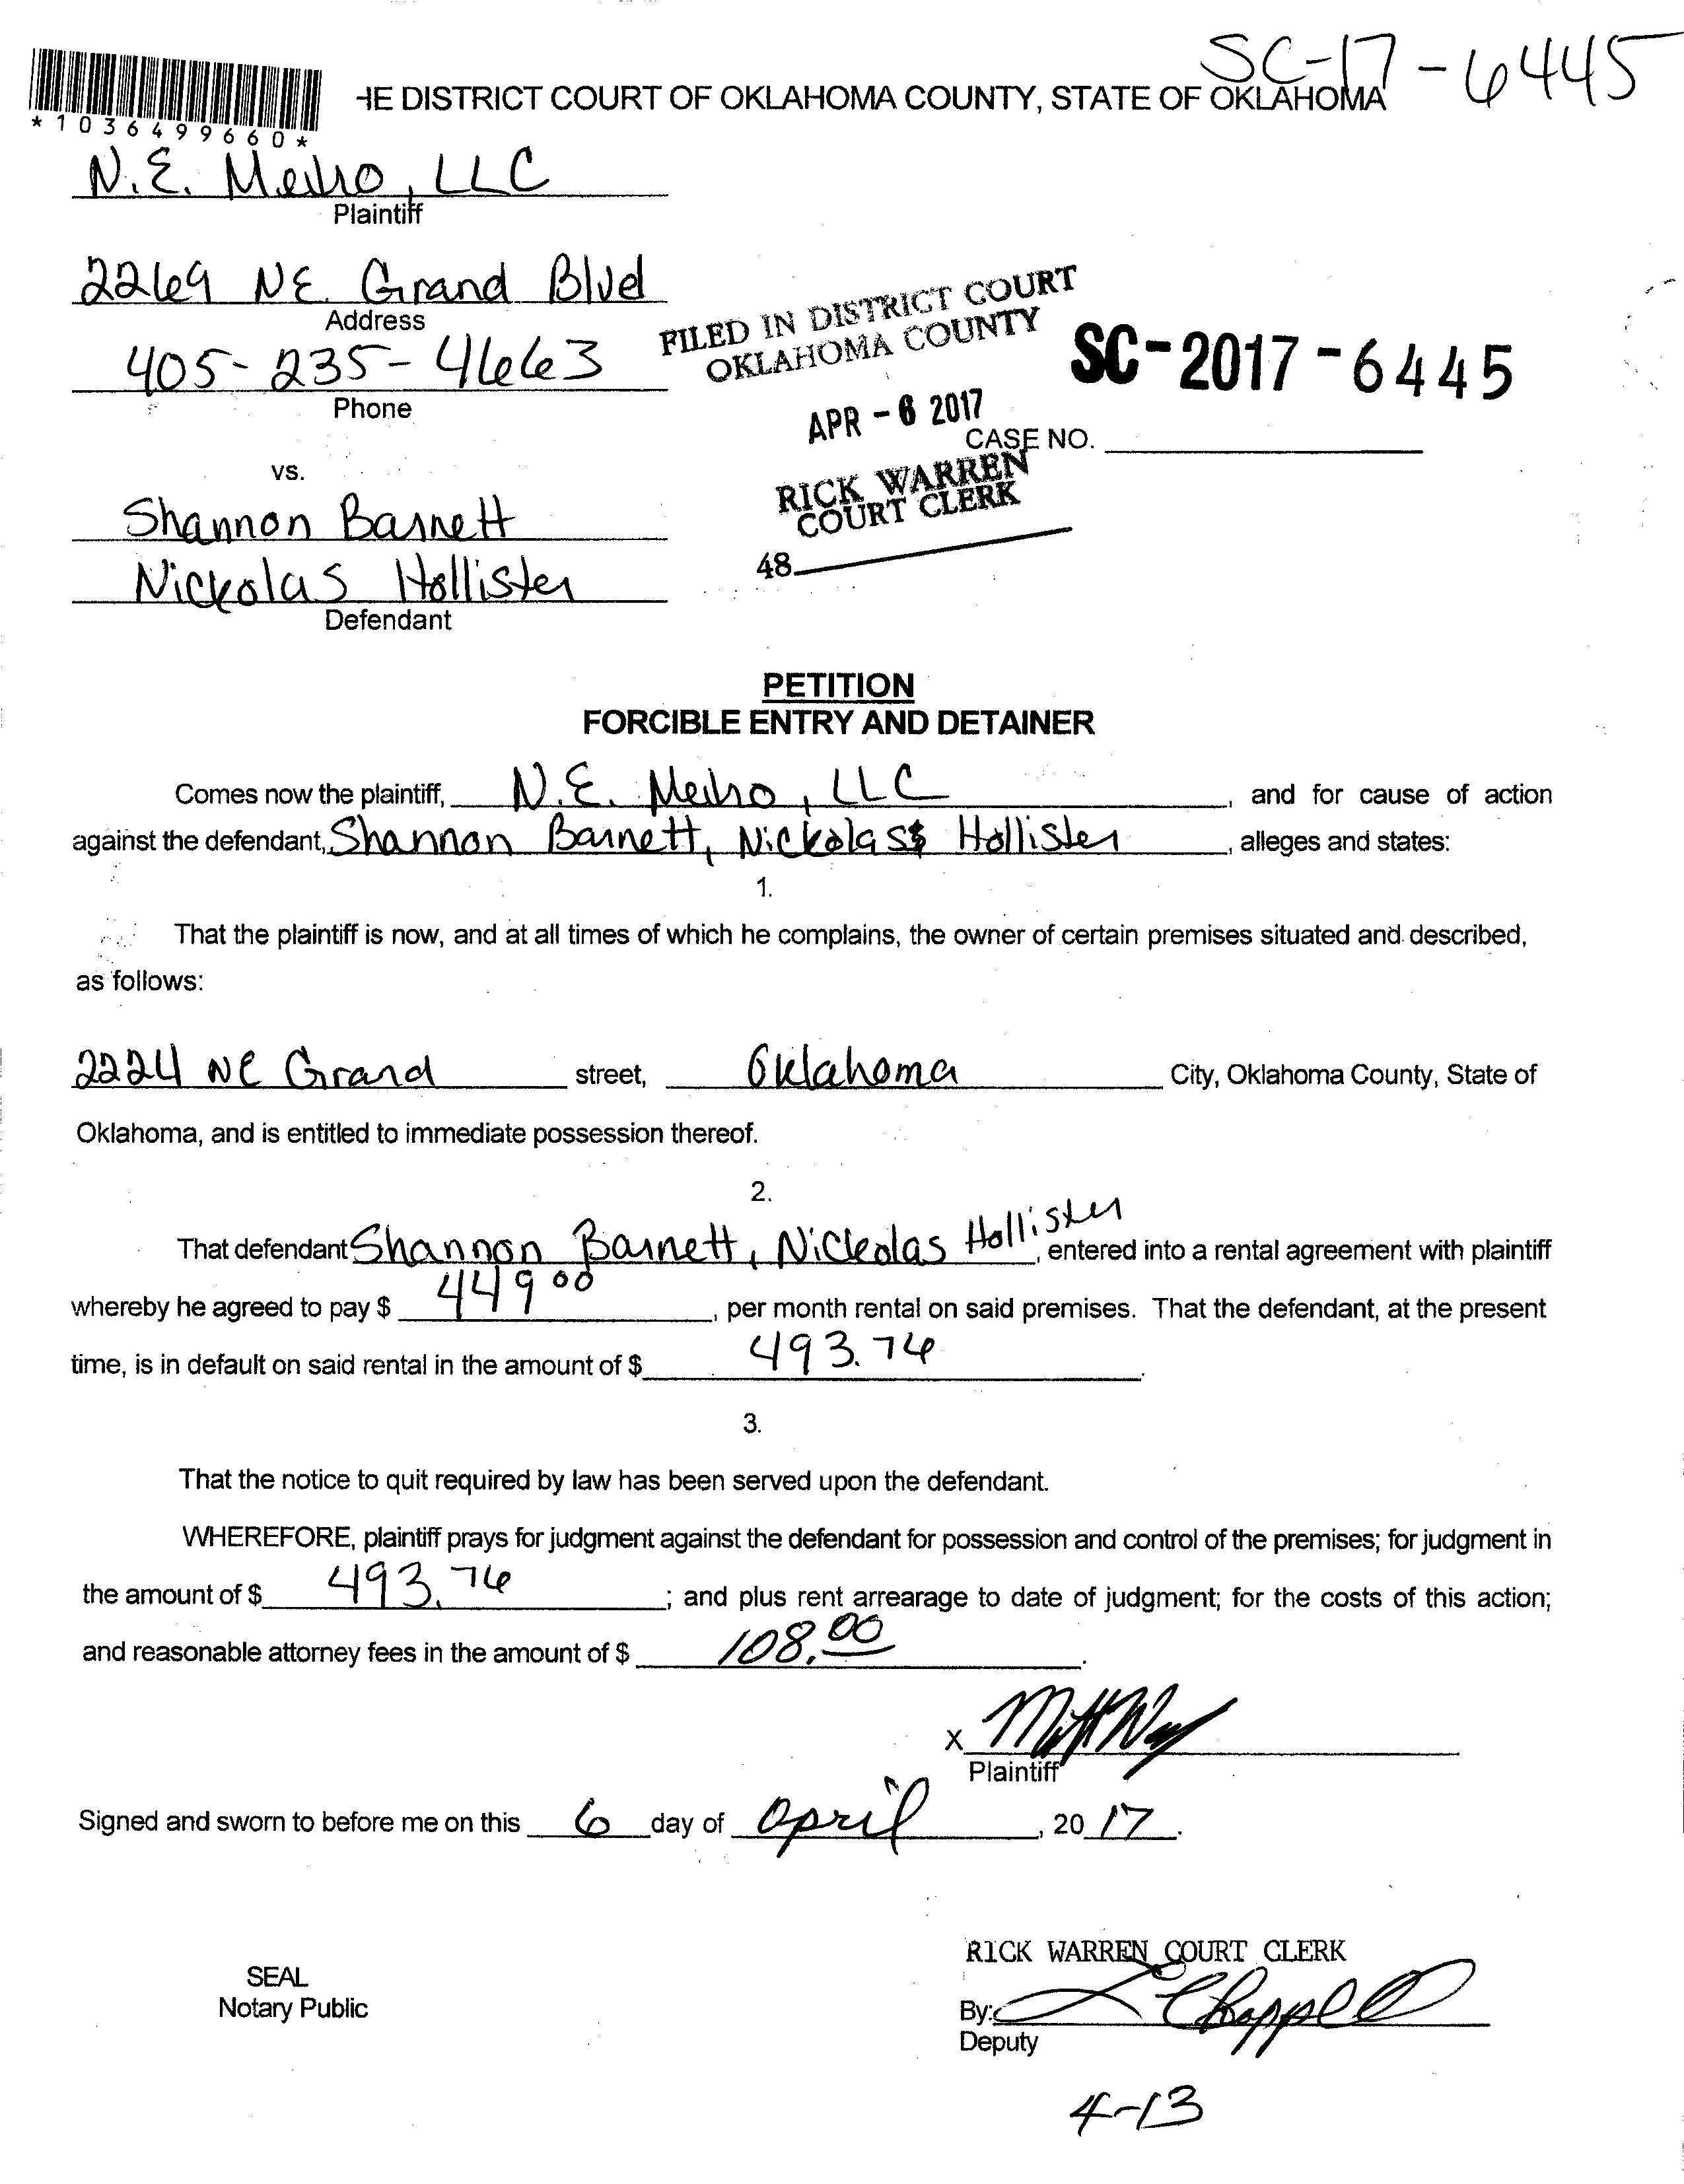 SC-17-6445
HE DISTRICT COURT OF OKLAHOMA COUNTY, STATE OF OKLAHOMA
*1036499660*
N.E. Metro, LLC
Plaintiff
2269 NE Grand Blvd
Address
405-235-4663
Phone
FILED IN DISTRICT COURT
OKLAHOMA COUNTY
SC-2017-6445
APR - 6 2017
CASE NO.
RICK WARREN
COURT CLERK
48
vs.
Shannon Barnett
Nickolas Hollister
Defendant
PETITION
FORCIBLE ENTRY AND DETAINER
Comes now the plaintiff, N.E. Metro, LLC, and for cause of action
against the defendant, Shannon Barnett, Nickolas Hollister, alleges and states:
1.
That the plaintiff is now, and at all times of which he complains, the owner of certain premises situated and described,
as follows:
2224 NE Grand street, Oklahoma City, Oklahoma County, State of
Oklahoma, and is entitled to immediate possession thereof.
2.
That defendant Shannon Barnett, Nickolas Hollister, entered into a rental agreement with plaintiff
whereby he agreed to pay $ 449 00, per month rental on said premises. That the defendant, at the present
time, is in default on said rental in the amount of $ 493.76.
3.
That the notice to quit required by law has been served upon the defendant.
WHEREFORE, plaintiff prays for judgment against the defendant for possession and control of the premises; for judgment in
the amount of $ 493.76; and plus rent arrearage to date of judgment; for the costs of this action;
and reasonable attorney fees in the amount of $ 108.00.
X
Plaintiff
Signed and sworn to before me on this 6 day of April, 2017.
RICK WARREN COURT CLERK
SEAL
Notary Public
By: L Chappell
Deputy
4-13